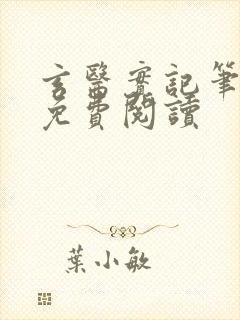 玄醫實記筆
免費閱讀
葉小敏